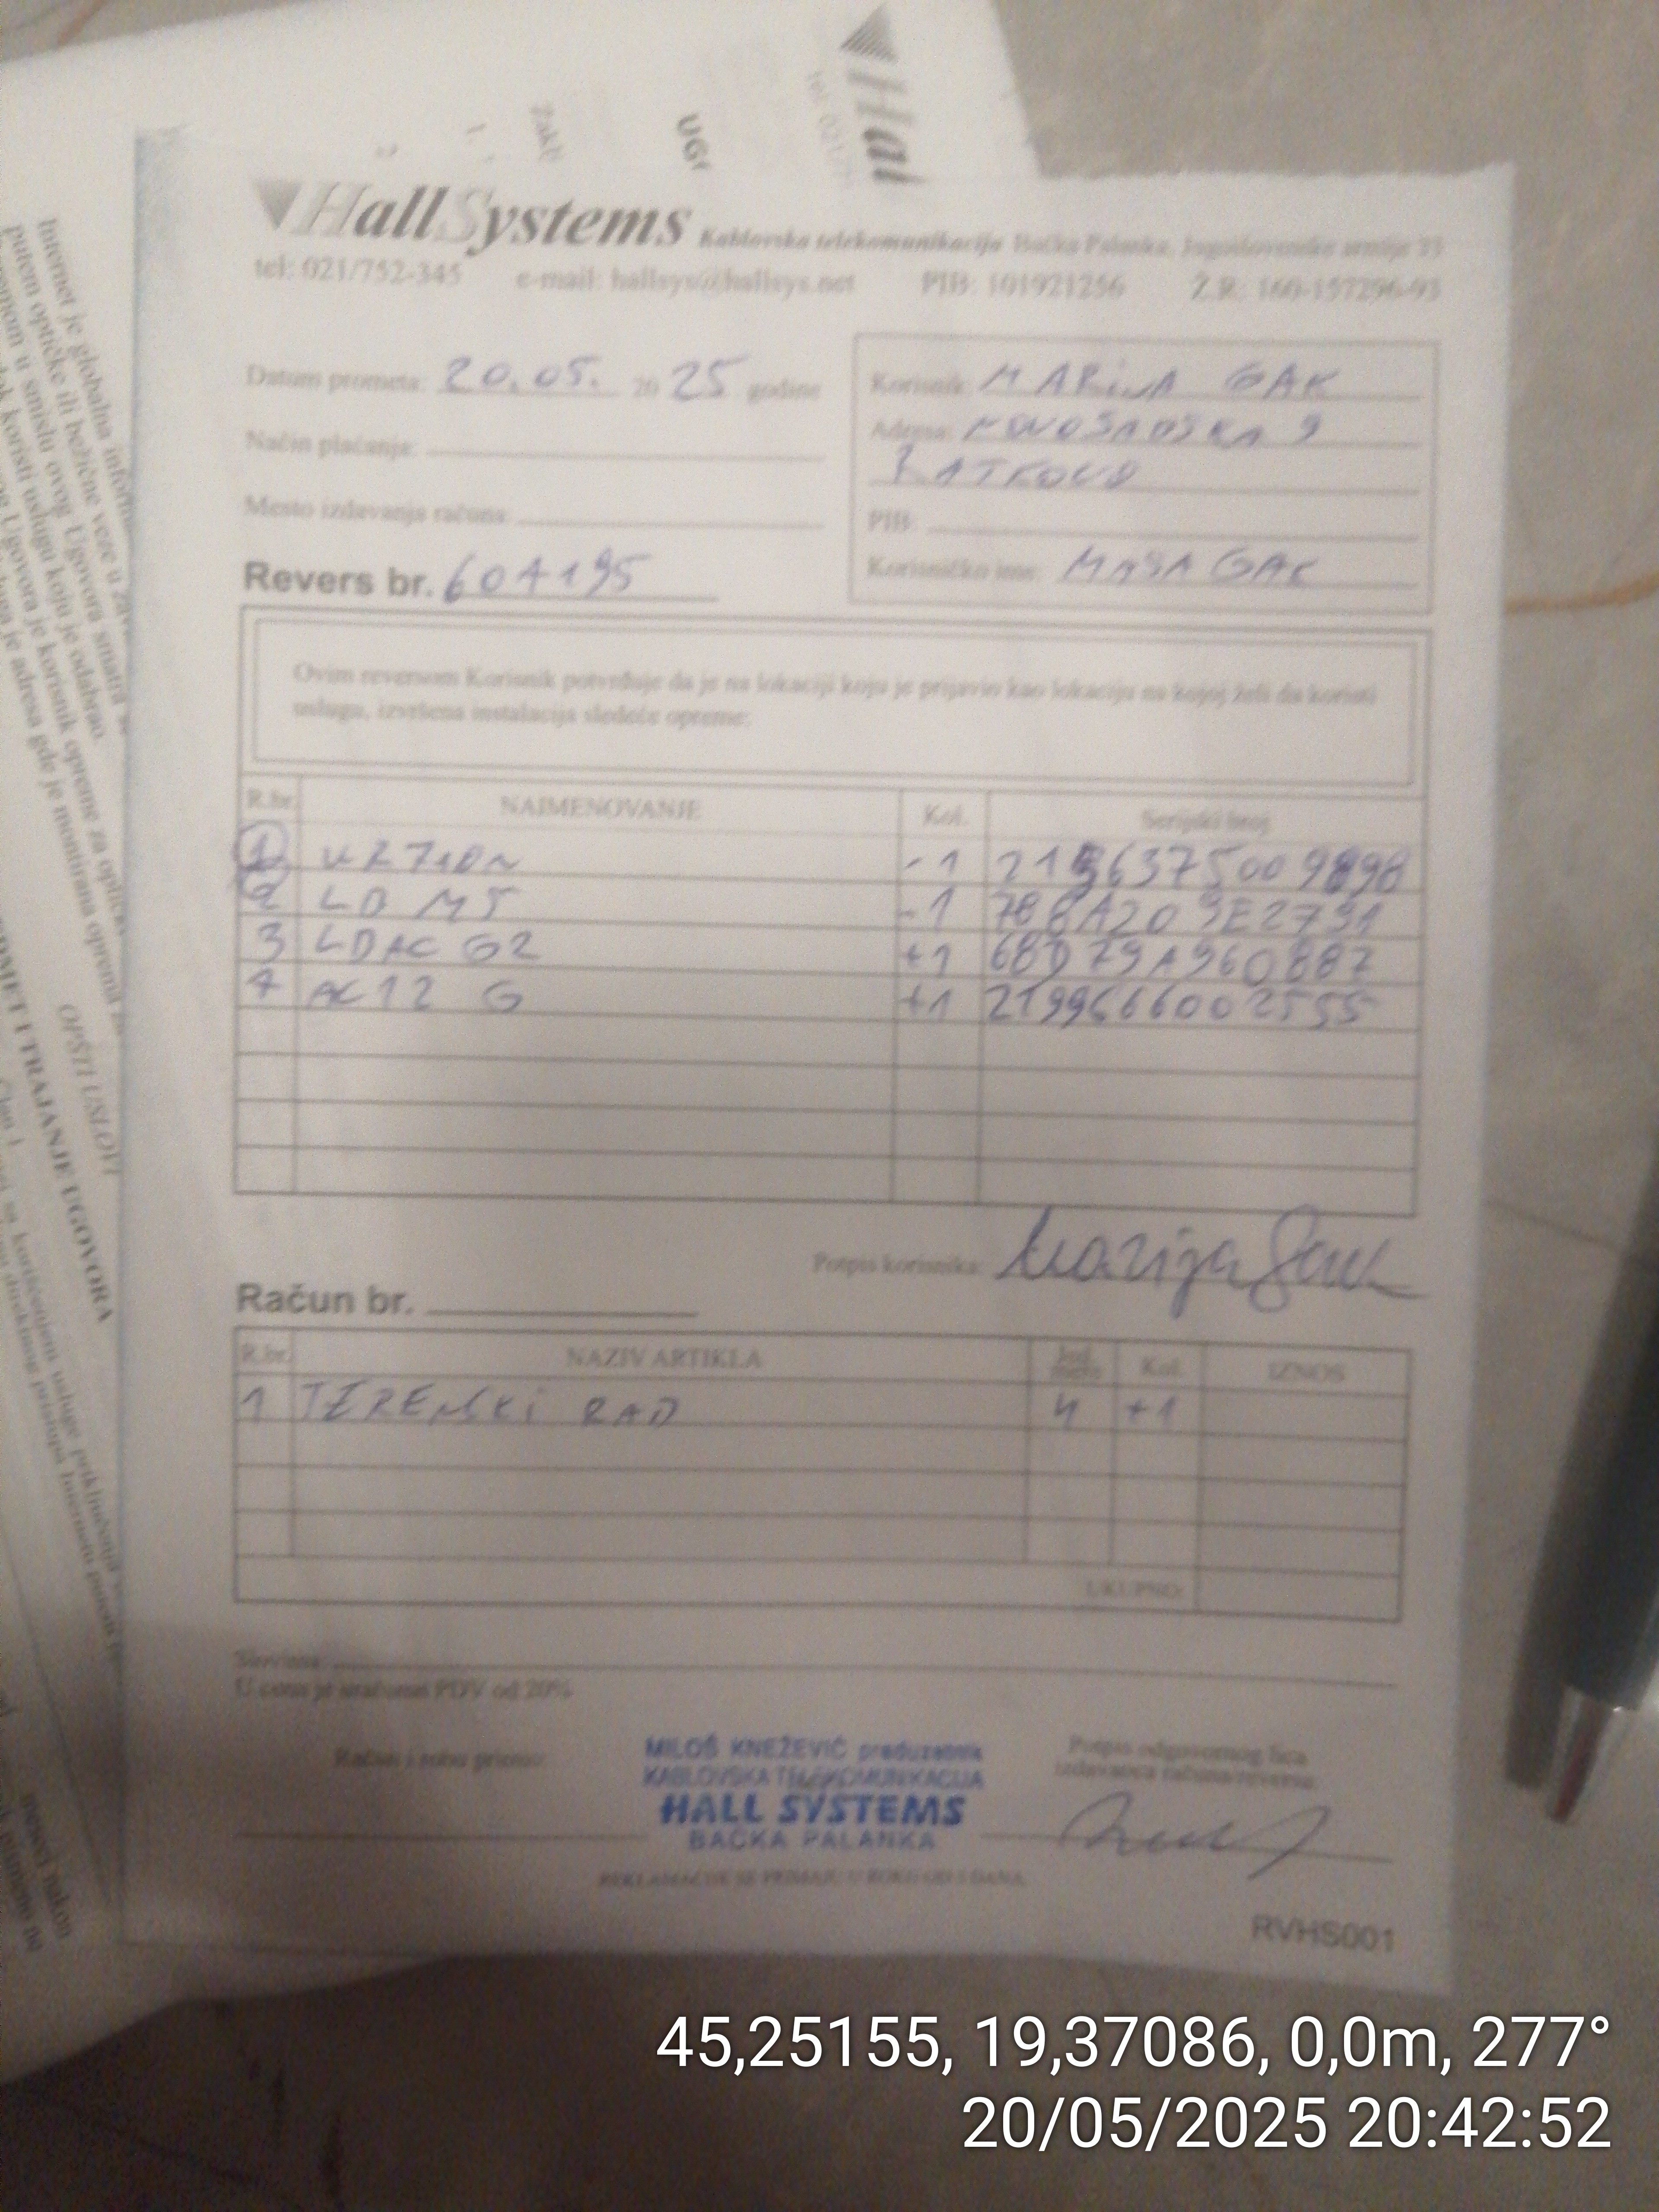 HallSystems Kablovska telekomunikacija Bačka Palanka, Jugoslovenske armije 35
tel: 021/752-345 e-mail: hallsys@hallsys.net PIB: 101921256 Ž.R: 160-157296-93
Datum prometa: 20.05. 20 25 godine
Način plaćanja:
Mesto izdavanja računa:
Revers br. 604195
Korisnik: MARINA GAK
Adresa: NOVOSADSKA 9
RATKOVO
PIB:
Korisničko ime: MASAGAK
Ovim reversom Korisnik potvrđuje da je na lokaciji koju je prijavio kao lokaciju na kojoj želi da koristi
uslugu, izvršena instalacija sledeće opreme:
R.br. NAIMENOVANJE Kol. Serijski broj
1 -1
2 LB M5 -1 788A209E2791
3 LDAC G2 +1 68D79A960887
4 AC12 G +1 2199666002555
Potpis korisnika: Marija Gak
Račun br.
R.br. NAZIV ARTIKLA Jed. mere Kol. IZNOS
1 TERENSKI RAD Ч +1
UKUPNO:
Slovima:
U cenu je uračunat PDV od 20%
Račun i robu primio:
MILOŠ KNEŽEVIĆ preduzetnik
KABLOVSKA TELEKOMUNIKACIJA
HALL SYSTEMS
BAČKA PALANKA
Potpis odgovornog lica
izdavaoca računa/reversa:
REKLAMACIJE SE PRIMAJU U ROKU OD 8 DANA
RVHS001
OPŠTI USLOVI
PREDMET I TRAJANJE UGOVORA
45,25155, 19,37086, 0,0m, 277°
20/05/2025 20:42:52